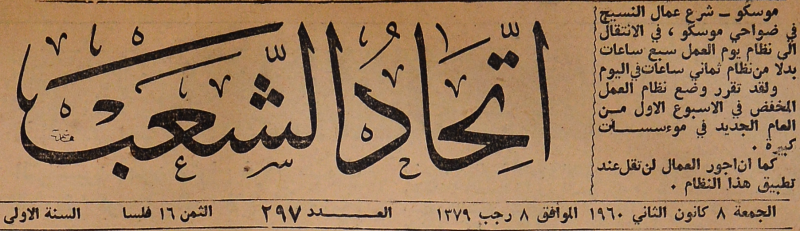 موسكو ـ شرع عمال النسيج
في ضواحي موسكو ، في الانتقال
الى نظام يوم العمل سبع ساعات
بدلا من نظام ثماني ساعات في اليوم
ولقد تقرر وضع نظام العمل
المخفض في الاسبوع الاول من
العام الجديد في موءسسات
كبيرة .
كما ان اجور العمال لن تقل عند
تطبيق هذا النظام .
اتحاد الشعب
الجمعة ٨ كانون الثاني ١٩٦٠ الموافق ٨ رجب ١٣٧٩ العـــدد ٢٩٧ الثمن ١٦ فلسا السنة الاولى